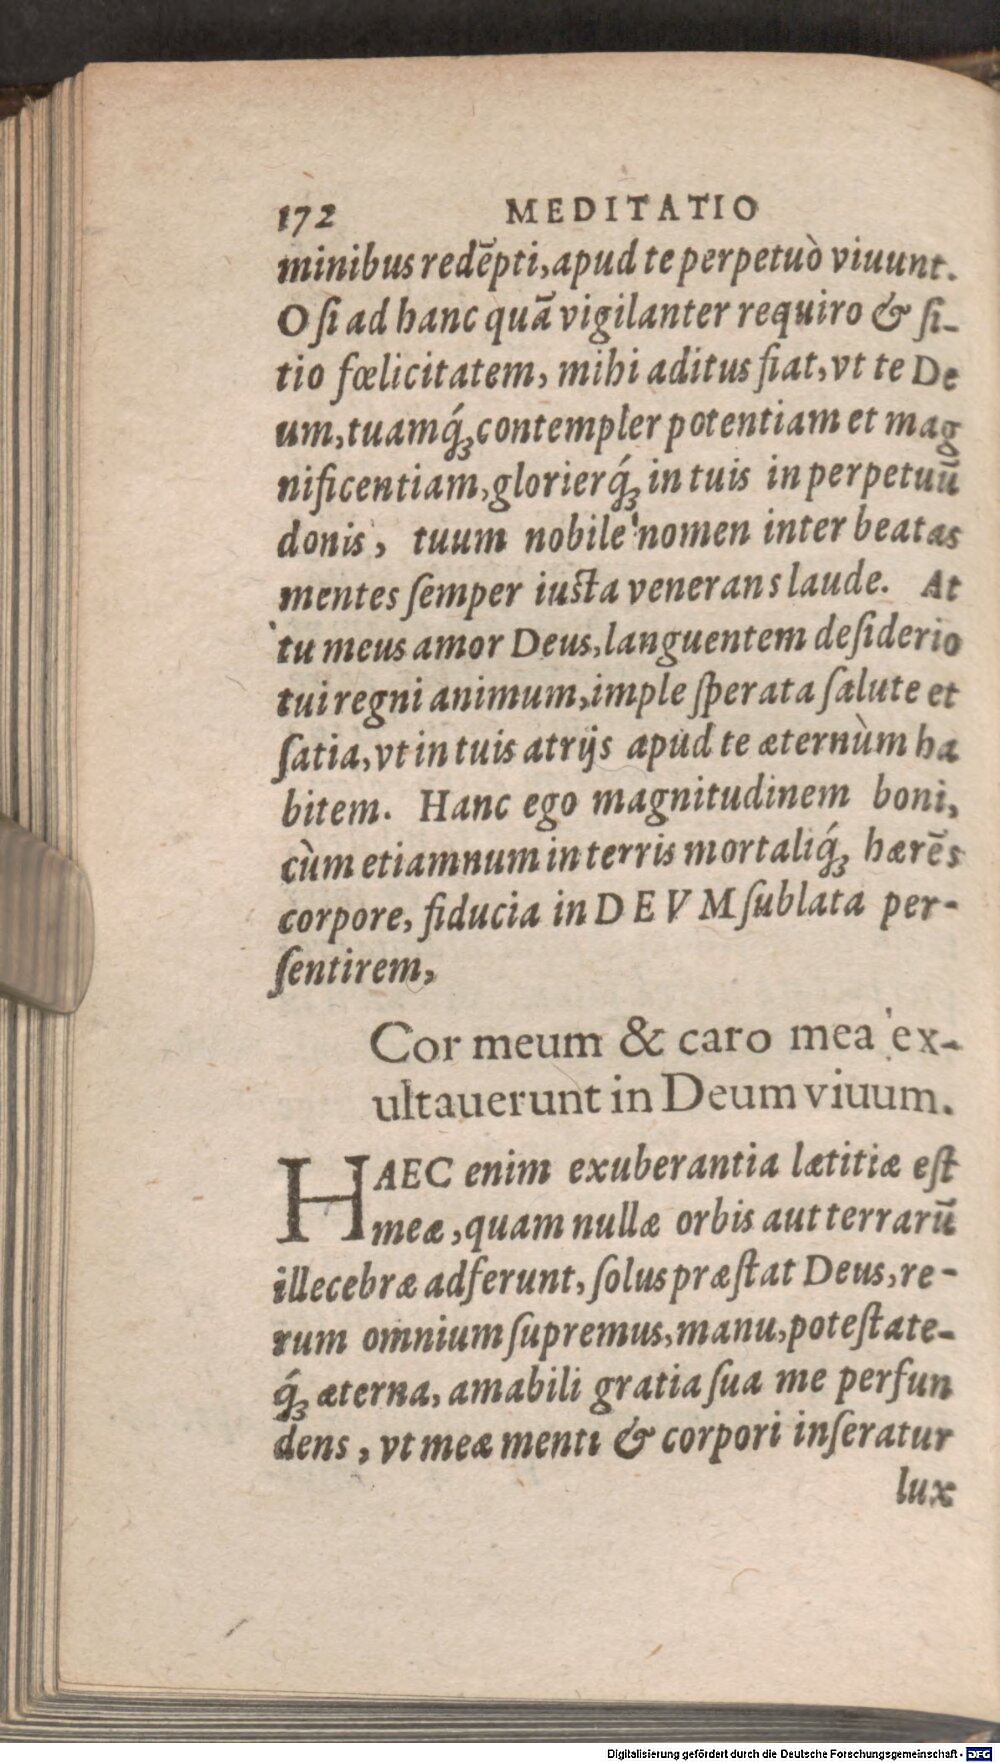 172 MEDITATIO
minibus redēpti, apud te perpetuò viuunt.
O ſi ad hanc quā vigilanter requiro & ſi-
tio fœlicitatem, mihi aditus fiat, vt te De
um, tuamq́ꝫ contempler potentiam et mag
nificentiam, glorierq́ꝫ in tuis in perpetuū
donis, tuum nobile nomen inter beatas
mentes ſemper iuſta venerans laude. At
tu meus amor Deus, languentem deſiderio
tui regni animum, imple ſperata ſalute et
ſatia, vt in tuis atrijs apud te æternùm ha
bitem. Hanc ego magnitudinem boni,
cùm etiamnum in terris mortaliq́ꝫ hærēs
corpore, fiducia in DEVM ſublata per-
ſentirem,
Cor meum & caro mea ex-
ultauerunt in Deum viuum.
HAEC enim exuberantia lætitiæ eſt
meæ, quam nullæ orbis aut terrarū
illecebræ adferunt, ſolus præſtat Deus, re-
rum omnium ſupremus, manu, poteſtate-
q́ꝫ æterna, amabili gratia ſua me perfun
dens, vt meæ menti & corpori inſeratur
lux
Digitalisierung gefördert durch die Deutsche Forschungsgemeinschaft - DFG